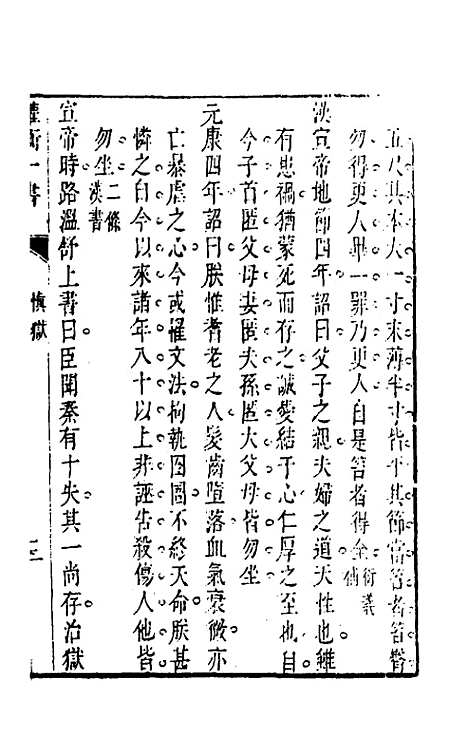 五尺其本大一寸末薄半寸皆平其節當笞者笞臀
勿得更人畢一罪乃更人自是笞者得全衍義補
漢宣帝地節四年詔曰父子之親夫婦之道天性也雖
有患禍猶蒙死而存之誠愛結于心仁厚之至也自
今子首匿父母妻匿夫孫匿大父母皆勿坐
元康四年詔曰朕惟耆老之人髮齒墮落血氣衰微亦
亡暴虐之心今或罹文法拘執囹圄不終天命朕甚
憐之自今以來諸年八十以上非誣告殺傷人他皆
勿坐二條漢書
宣帝時路溫舒上書曰臣聞秦有十失其一尚存治獄
衡一書
慎獄